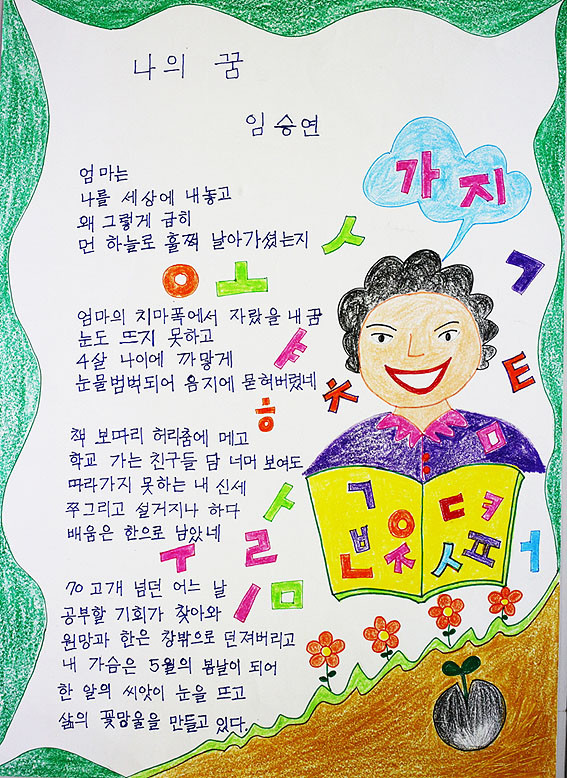 나의 꿈
임승연
가지
엄마는
나를 세상에 내놓고
왜 그렇게 급히
먼 하늘로 훌쩍 날아가셨는지
엄마의 치마폭에서 자랐을 내 꿈
눈도 뜨지 못하고
4살 나이에 까맣게
눈물범벅되어 음지에 묻혀버렸네
책 보따리 허리춤에 메고
학교 가는 친구들 담 너머 보여도
따라가지 못하는 내 신세
쭈그리고 설거지나 하다
배움은 한으로 남았네
70 고개 넘던 어느 날
공부할 기회가 찾아와
원망과 한은 창밖으로 던져버리고
내 가슴은 5월의 봄날이 되어
한 알의 씨앗이 눈을 뜨고
삶의 꽃망울을 만들고 있다.
ㅅ
ㄱ
ㅇ ㅗ
ㅑ
ㅊ
ㅌ
ㅎ
ㅁ
ㄱ ㅇ ㄷ ㅋ
ㅅ
ㅂ ㅈ ㅅ ㅍ ㅓ
ㅜ ㄹ
ㅣ ㅁ